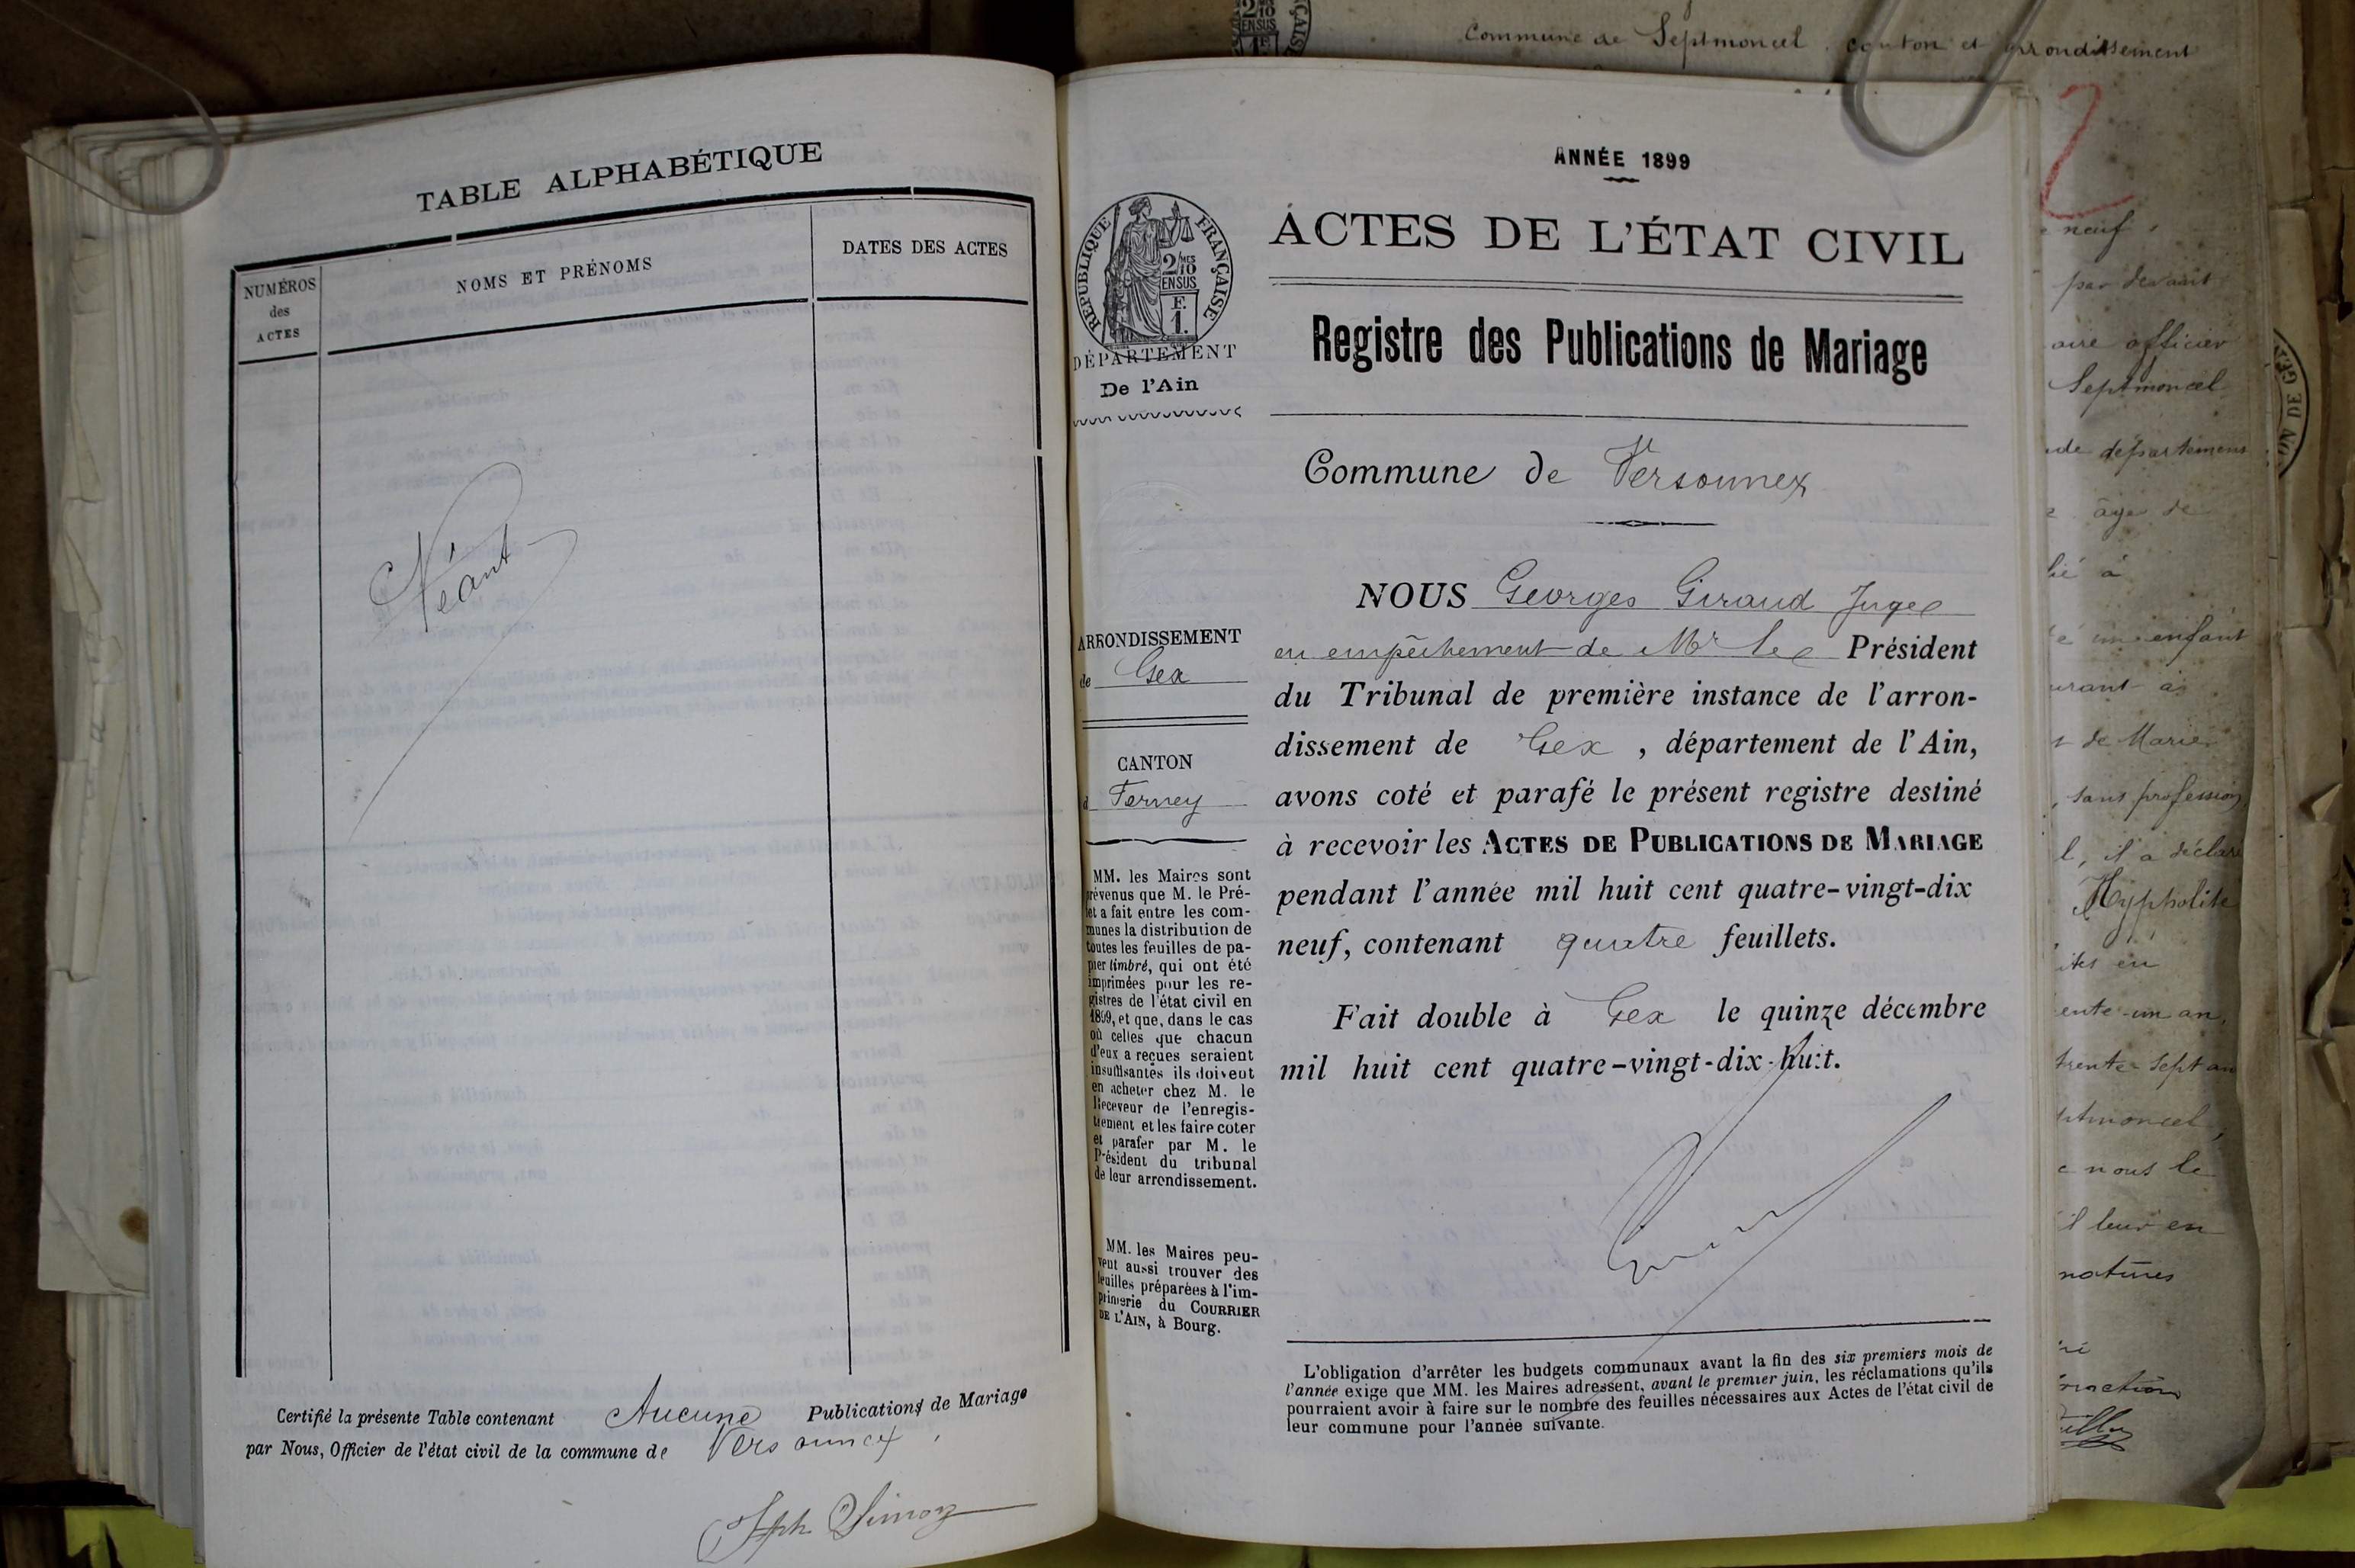 TABLE ALPHABÉTIQUE
NUMÉROS
des
ACTES
NOMS ET PRÉNOMS
DATES DES ACTES
Néant
Certifié la présente Table contenant Aucune Publications de Mariage
par Nous, Officier de l'état civil de la commune de Versonnex,
Jph Simoz
ANNÉE 1899
RÉPUBLIQUE FRANÇAISE
2/10MES
EN SUS
F.
1.
DÉPARTEMENT
De l'Ain
ACTES DE L'ÉTAT CIVIL
Registre des Publications de Mariage
Commune de Versonnex
ARRONDISSEMENT
de Gex
CANTON
d Ferney
MM. les Maires sont
prévenus que M. le Pré-
fet a fait entre les com-
munes la distribution de
toutes les feuilles de pa-
pier timbré, qui ont été
imprimées pour les re-
gistres de l'état civil en
1899, et que, dans le cas
où celles que chacun
d'eux a reçues seraient
insuffisantes ils doivent
en acheter chez M. le
Receveur de l'enregis-
trement et les faire coter
et parafer par M. le
Président du tribunal
de leur arrondissement.
MM. les Maires peu-
vent aussi trouver des
feuilles préparées à l'im-
primerie du COURRIER
DE L'AIN, à Bourg.
NOUS Georges Giraud Juge
en empêchement de Mr le Président
du Tribunal de première instance de l'arron-
dissement de Gex, département de l'Ain,
avons coté et parafé le présent registre destiné
à recevoir les ACTES DE PUBLICATIONS DE MARIAGE
pendant l'année mil huit cent quatre-vingt-dix
neuf, contenant quatre feuillets.
Fait double à Gex le quinze décembre
mil huit cent quatre-vingt-dix-huit.
L'obligation d'arrêter les budgets communaux avant la fin des six premiers mois de
l'année exige que MM. les Maires adressent, avant le premier juin, les réclamations qu'ils
pourraient avoir à faire sur le nombre des feuilles nécessaires aux Actes de l'état civil de
leur commune pour l'année suivante.
Commune de Septmoncel, canton et arrondissement
2
neuf,
par devant
officier
Septmoncel
de département
âgé de
à
enfant
de Marie
, sans profession
l, il a déclaré
Hyppolite
en
trente sept an
nous le
il leur en